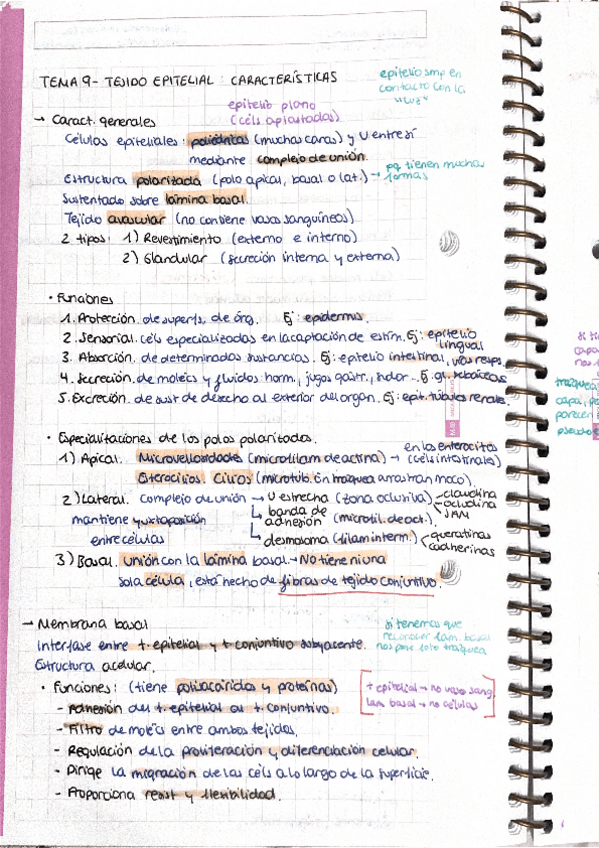 TEMA 9- TEJIDO EPITELIAL: CARACTERÍSTICAS
epitelio smp en
contacto con la
"luz"
epitelio plano
(céls aplastadas)
→ Caract. generales
Células epiteliales: poliédricas (muchas caras) y U entre sí
mediante complejo de unión.
Estructura polarizada (polo apical, basal o lat.) → pq tienen muchas
formas
Sustentado sobre lámina basal.
Tejido avascular (no contiene vasos sanguíneos)
2 tipos: 1) Revestimiento (externo e interno)
2) Glandular (secreción interna y externa)
• Funciones
1. Protección. de superfs, de órg. Ej: epidermis.
2. Sensorial. céls especializadas en la captación de estím. Ej: epitelio
lingual
3. Absorción. de determinadas sustancias. Ej: epitelio intestinal, vías resps.
4. Secreción. de molécs y fluidos: horm., jugos gástr., sudor... Ej: gl. sebáceas
5. Excreción. de sust de desecho al exterior del organ. Ej: epit. túbulos renale
• Especializaciones de los polos polarizados.
1) Apical. Microvellosidades (microfilam de actina) → en los enterocitos
(céls intestinales)
Esterocilios. Cilios (microtúb. En tráquea arrastran moco).
2) Lateral. complejo de unión → U estrecha (zona oclusiva) claudina
ocludina
JAM
mantiene yuxtaposición
entre células
banda de
adhesión (microfil. de act.).
desmosoma (filam interm.) queratinas
cadherinas
3) Basal. Unión con la lámina basal. → No tiene ni una
sola célula, está hecho de fibras de tejido conjuntivo.
→ Membrana basal
Interfase entre t. epitelial y t. conjuntivo subyacente.
Estructura acelular.
si tenemos que
reconocer lám. basal
nos pone foto tráquea
• Funciones: (tiene polisacáridos y proteínas)
t epitelial → no vaso sang
lám basal → no células
- Adhesión del t. epitelial al t. conjuntivo.
- Filtro de molécs entre ambos tejidos.
- Regulación de la proliferación y diferenciación celular.
- Dirige la migración de las céls a lo largo de la superficie.
- Proporciona resist y flexibilidad.